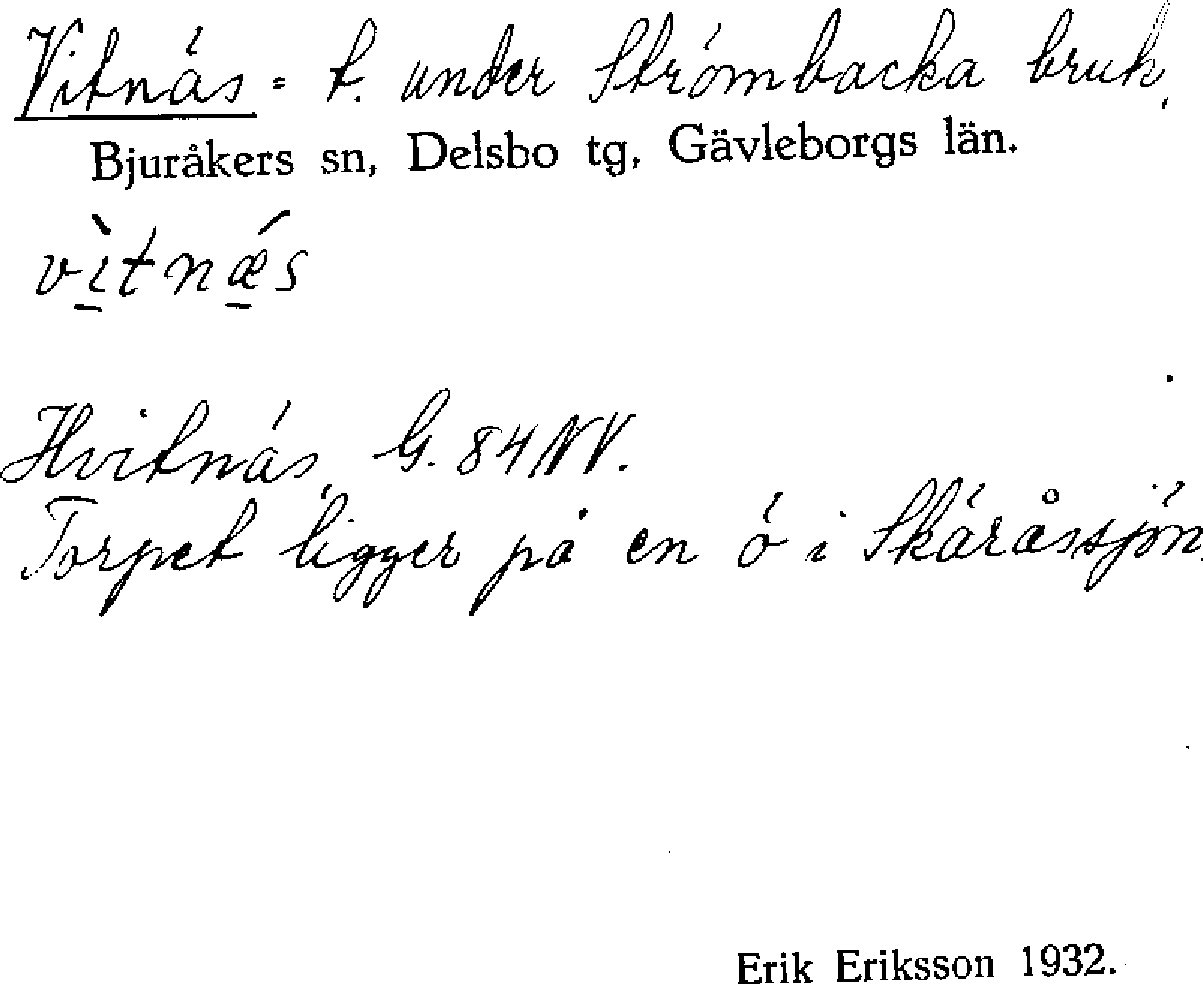 Vitnäs = t. under Strömbacka bruk,
Bjuråkers sn, Delsbo tg, Gävleborgs län.
vı̱̀tnǽ̱s
Hvitnäs, G. 84 NV.
Torpet ligger på en ö i Skäråssjön.
Erik Eriksson 1932.